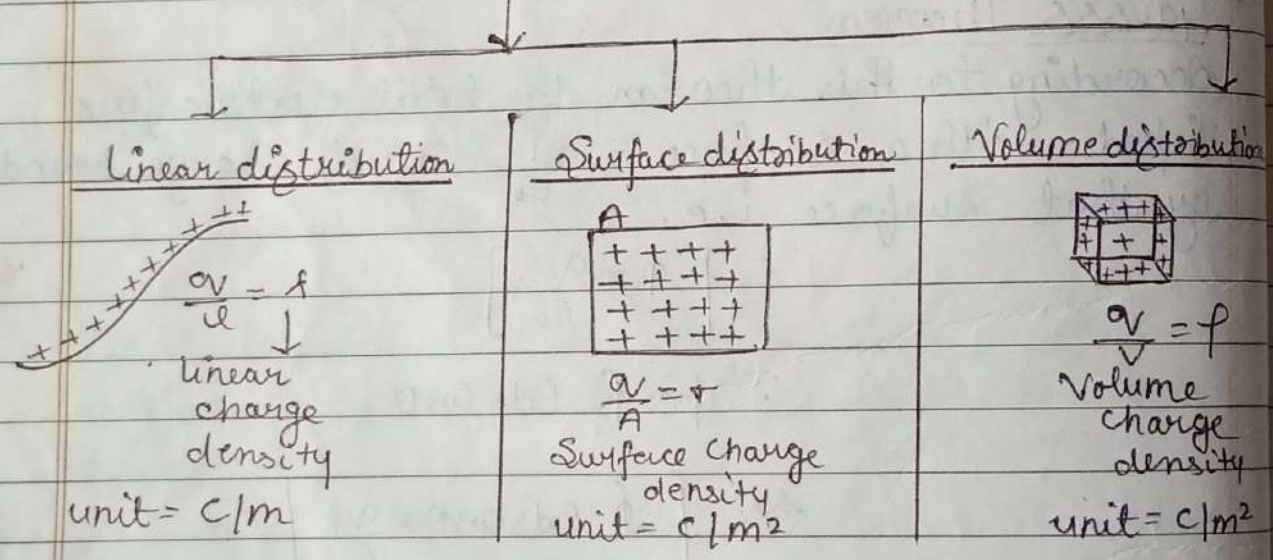 Linear distribution
+ + + + + + + + + + +
q/l = λ
Linear
charge
density
unit = C/m
Surface distribution
A
+ + + +
+ + + +
+ + + +
+ + + +
q/A = σ
Surface Charge
density
unit = C/m²
Volume distribution
+ + +
+ + +
+ + +
q/V = ρ
Volume
Charge
density
unit = C/m²